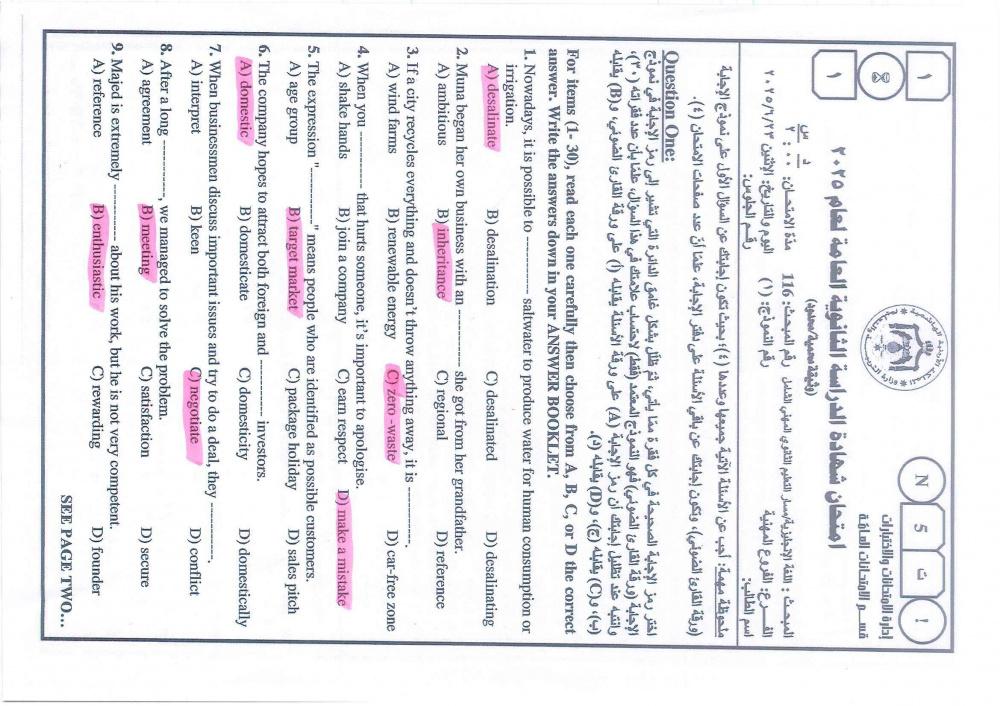 ١
١
امتحان شهادة الدراسة الثانوية العامة لعام ٢٠٢٥
N
5
ت
إ
إدارة الامتحانات والاختبارات
قسم الامتحانات العامة
(وثيقة محمية/محدود)
د س
المبحث : اللغة الإنجليزية/مسار التعليم الثانوي المهني الشامل رقم المبحث: 116 مدة الامتحان: ٠٠ : ٢
الفرع: الفروع المهنية رقم النموذج: (١) اليوم والتاريخ: الإثنين ٢٠٢٥/٦/٢٣
اسم الطالب: رقم الجلوس:
ملحوظة مهمة: أجب عن الأسئلة الآتية جميعها وعددها (٤)؛ بحيث تكون إجابتك عن السؤال الأول على نموذج الإجابة
(ورقة القارئ الضوئي)، وتكون إجابتك عن باقي الأسئلة على دفتر الإجابة، علمًا أنّ عدد صفحات الامتحان (٤).
Question One:
اختر رمز الإجابة الصحيحة في كل فقرة ممّا يأتي، ثمّ ظلل بشكل غامق الدائرة التي تشير إلى رمز الإجابة في نموذج
الإجابة (ورقة القارئ الضوئي) فهو النموذج المعتمد (فقط) لاحتساب علامتك في هذا السؤال، علمًا بأن عدد فقراته (٣٠)،
وانتبه عند تظليل إجابتك أن رمز الإجابة (A) على ورقة الأسئلة يقابله (أ) على ورقة القارئ الضوئي، و(B) يقابله
(ب)، و(C) يقابله (ج)، و(D) يقابله (د).
For items (1- 30), read each one carefully then choose from A, B, C, or D the correct
answer. Write the answers down in your ANSWER BOOKLET.
1. Nowadays, it is possible to ------------- saltwater to produce water for human consumption or
irrigation.
A) desalinate B) desalination C) desalinated D) desalinating
2. Muna began her own business with an ------------- she got from her grandfather.
A) ambitious B) inheritance C) regional D) reference
3. If a city recycles everything and doesn't throw anything away, it is -------------.
A) wind farms B) renewable energy C) zero -waste D) car-free zone
4. When you ------------- that hurts someone, it's important to apologise.
A) shake hands B) join a company C) earn respect D) make a mistake
5. The expression "-------------" means people who are identified as possible customers.
A) age group B) target market C) package holiday D) sales pitch
6. The company hopes to attract both foreign and ------------- investors.
A) domestic B) domesticate C) domesticity D) domestically
7. When businessmen discuss important issues and try to do a deal, they -------------.
A) interpret B) keen C) negotiate D) conflict
8. After a long -------------, we managed to solve the problem.
A) agreement B) meeting C) satisfaction D) secure
9. Majed is extremely ------------- about his work, but he is not very competent.
A) reference B) enthusiastic C) rewarding D) founder
SEE PAGE TWO...